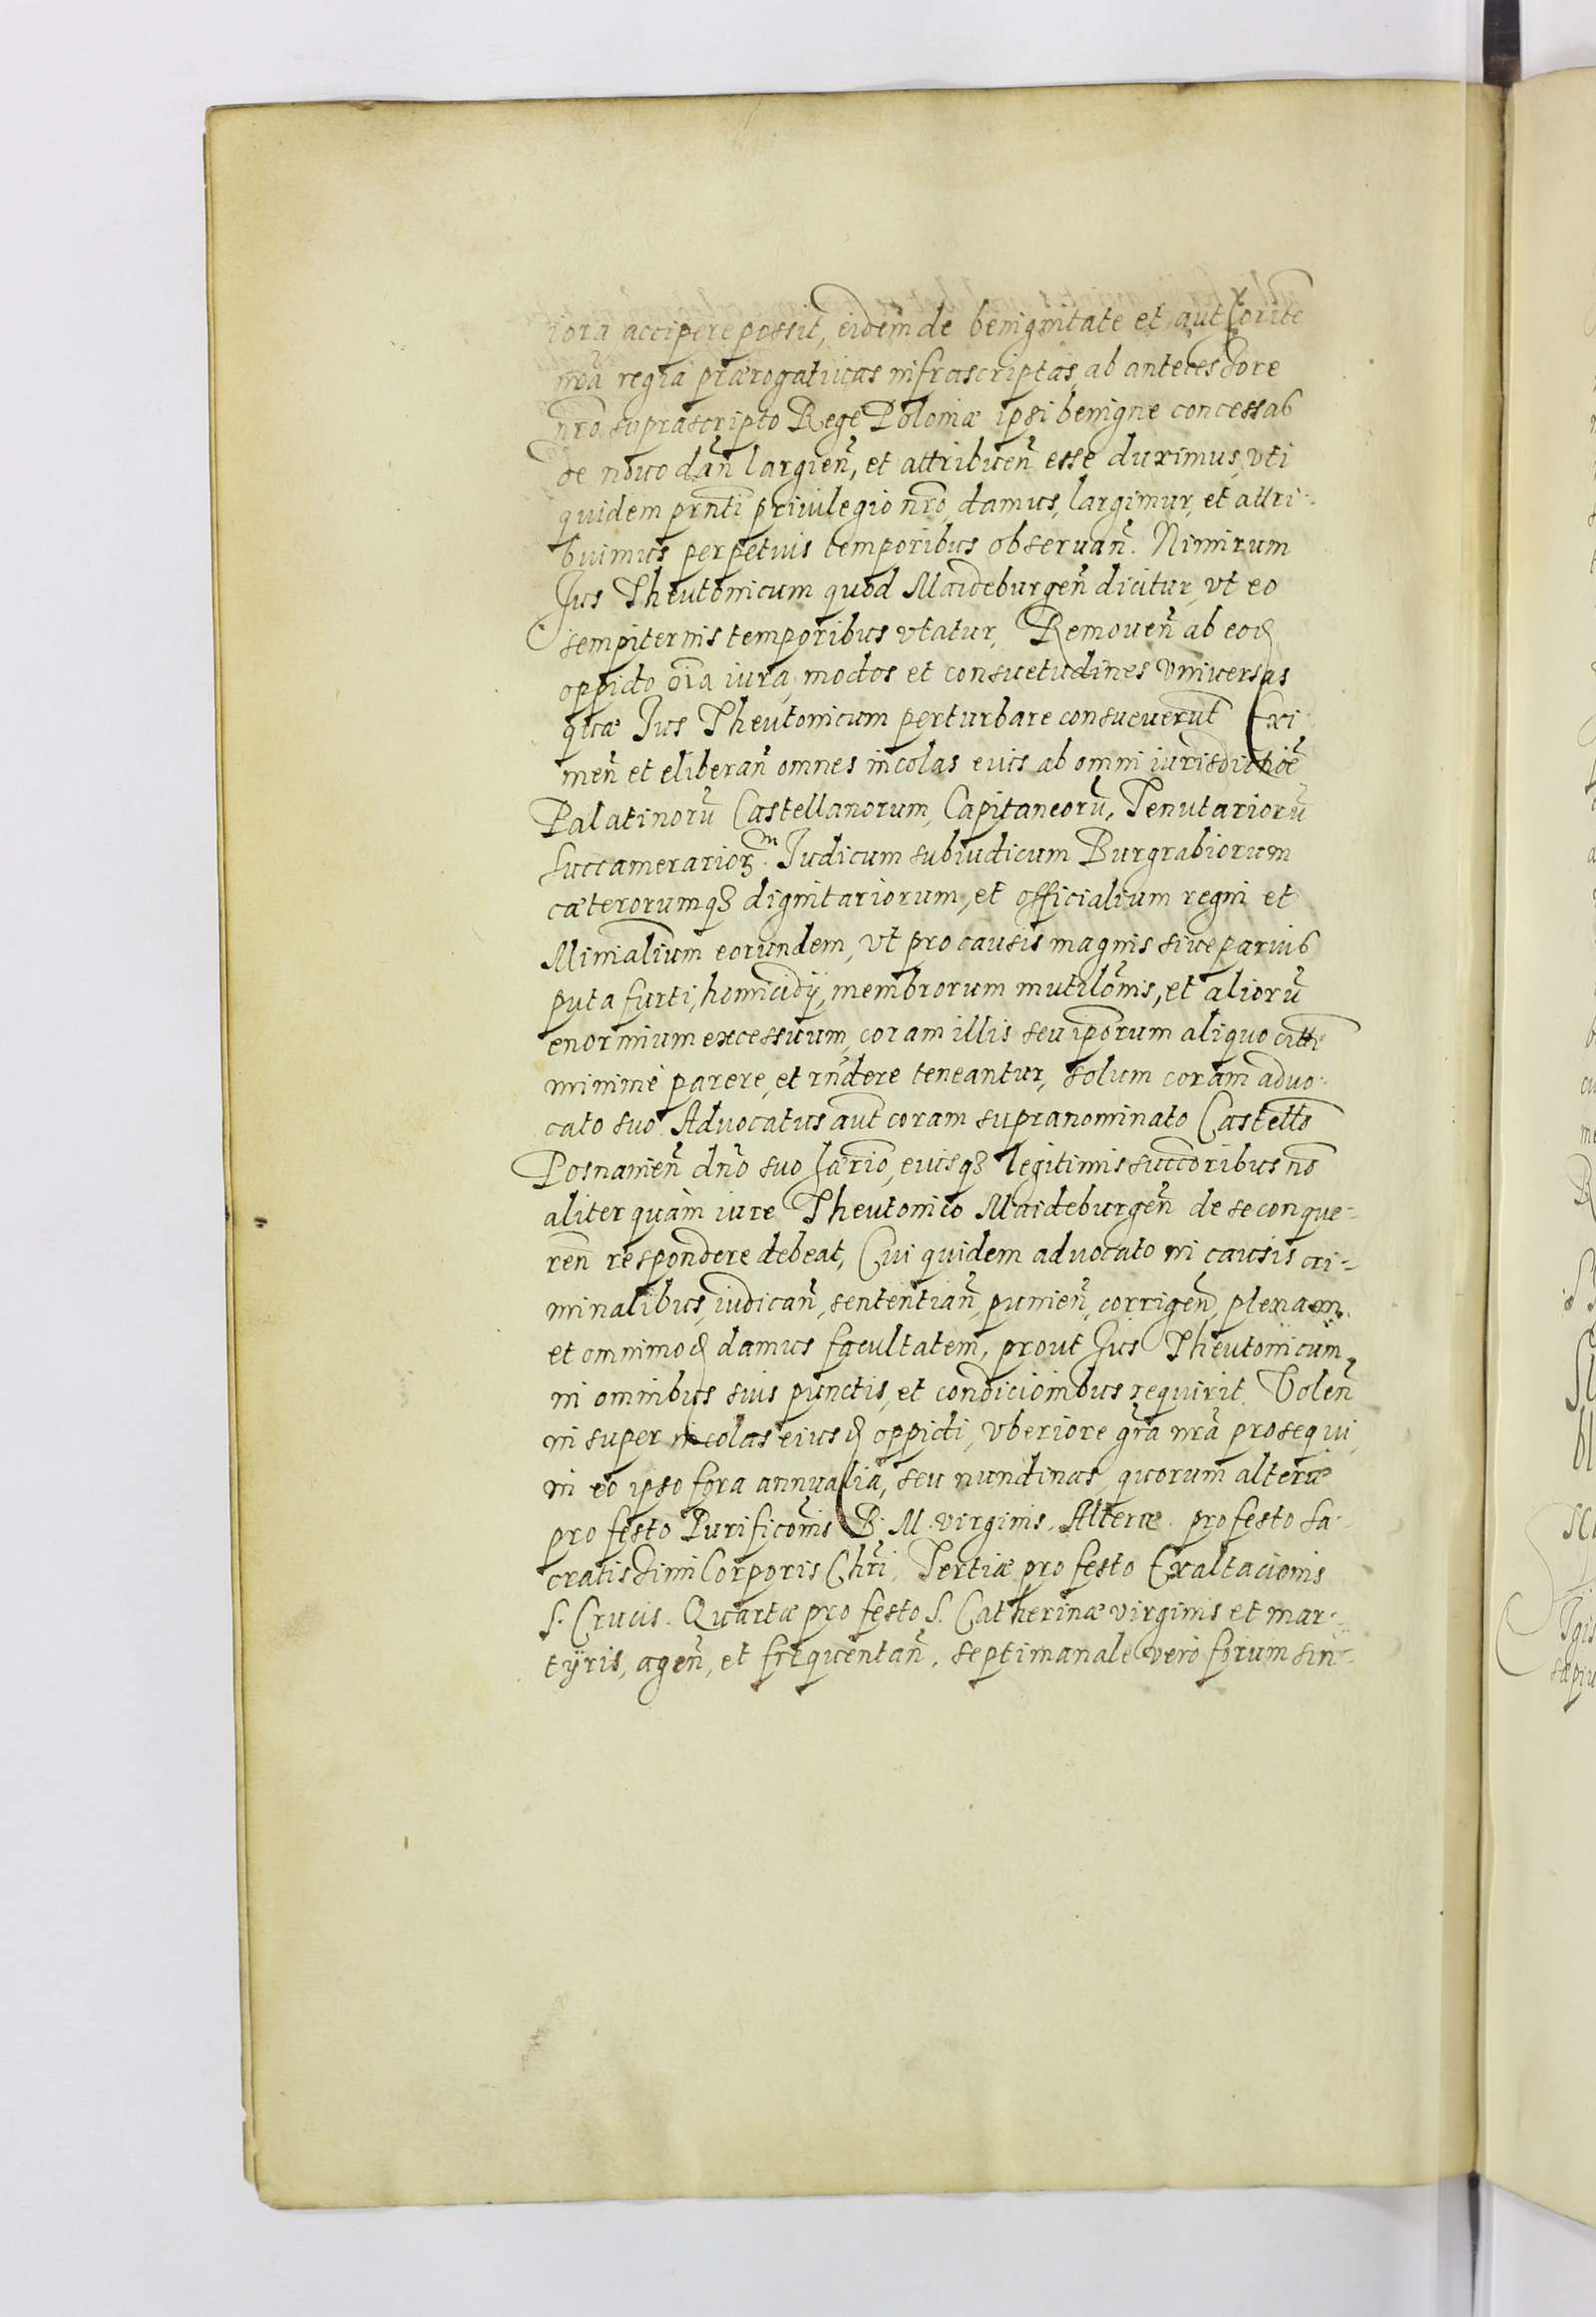 iora accipere possit, eidem de benignitate et authorite
nrã regia prærogatiuas infrascriptas, ab antecessore
nrõ suprascripto Rege Poloniæ ipsi benigne concessas
de nouo dañ largieñ, et attribueñ esse duximus, vti
quidem prñti priuilegio nrõ, damus, largimur, et attri-
buimus perpetuis temporibus obseruañ. Nimirum
Jus Theutonicum quod Maideburgeñ dicitur, vt eo
sempiternis temporibus vtatur, Remoueñ ab eod
oppido oĩa iura, modos et consuetudines vniuersas
quæ Jus Theutonicum perturbare consueuerũt Exi
meñ et eliberañ omnes incolas euis ab omni iurisdictiõe
Palatinorũ Castellanorum, Capitaneorũ, Tenutariorũ
Succamerarioꝝm. Judicum subiudicum Burgrabiorum
cæterorumqȝ dignitariorum, et officialium regni et
Minialium eorundem, vt pro causis magnis siue paruis
puta furti, homicidÿ, membrorum mutilõnis, et aliorũ
enormium excessuum, coram illis seu ipõrum aliquo citti
minimè parere, et rñdere teneantur, solum coram aduo-
cato suo. Aduocatus aũt coram supranominato Castellõ
Posnanieñ dnõ suo hærio, euisqȝ legitimis succõribus nõ
aliter quàm iure Theutonico Maideburgeñ de se conque-
reñ respondere debeat, Cui quidem aduocato in causis cri-
minalibus, iudicañ, sententiañ, punieñ, corrigeñ, plenam
et omnimod damus facultatem, prout Jus Theutonicum
in omnibus suis punctis, et condicionibus requirit. Voleñ
in super incolas eiusd oppidi, vberiore grã nrã prosequi,
in eo ipso fora annualia, seu nundinas, quorum alteræ
pro festo Purificõnis B. M. virginis. Alteræ pro festo Sa-
cratissimi Corporis Chrĩ, Tertiæ pro festo Exaltacionis
S. Crucis. Quartæ pro festo S. Catherinæ virginis et mar-
tÿris, ageñ, et frequentañ, septimanale verò forum sin-